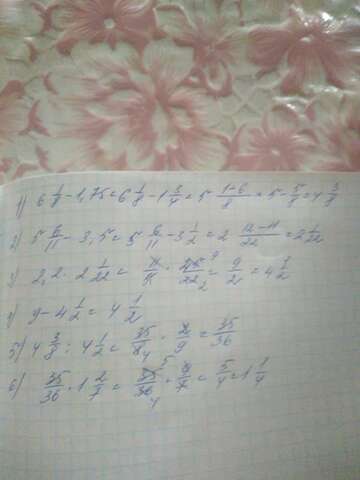 1) 6 1/8 - 1,75 = 6 1/8 - 1 3/4 = 5 (1-6)/8 = 5 - 5/8 = 4 3/8
2) 5 6/11 - 3,5 = 5 6/11 - 3 1/2 = 2 (12-11)/22 = 2 1/22
3) 2,2 · 2 1/22 = 11/5 · 45/22 = 9/2 = 4 1/2
4) 9 - 4 1/2 = 4 1/2
5) 4 3/8 : 4 1/2 = 35/8 4 · 2/9 = 35/36
6) 35/36 · 1 2/7 = 35 5/36 4 · 9/7 = 5/4 = 1 1/4